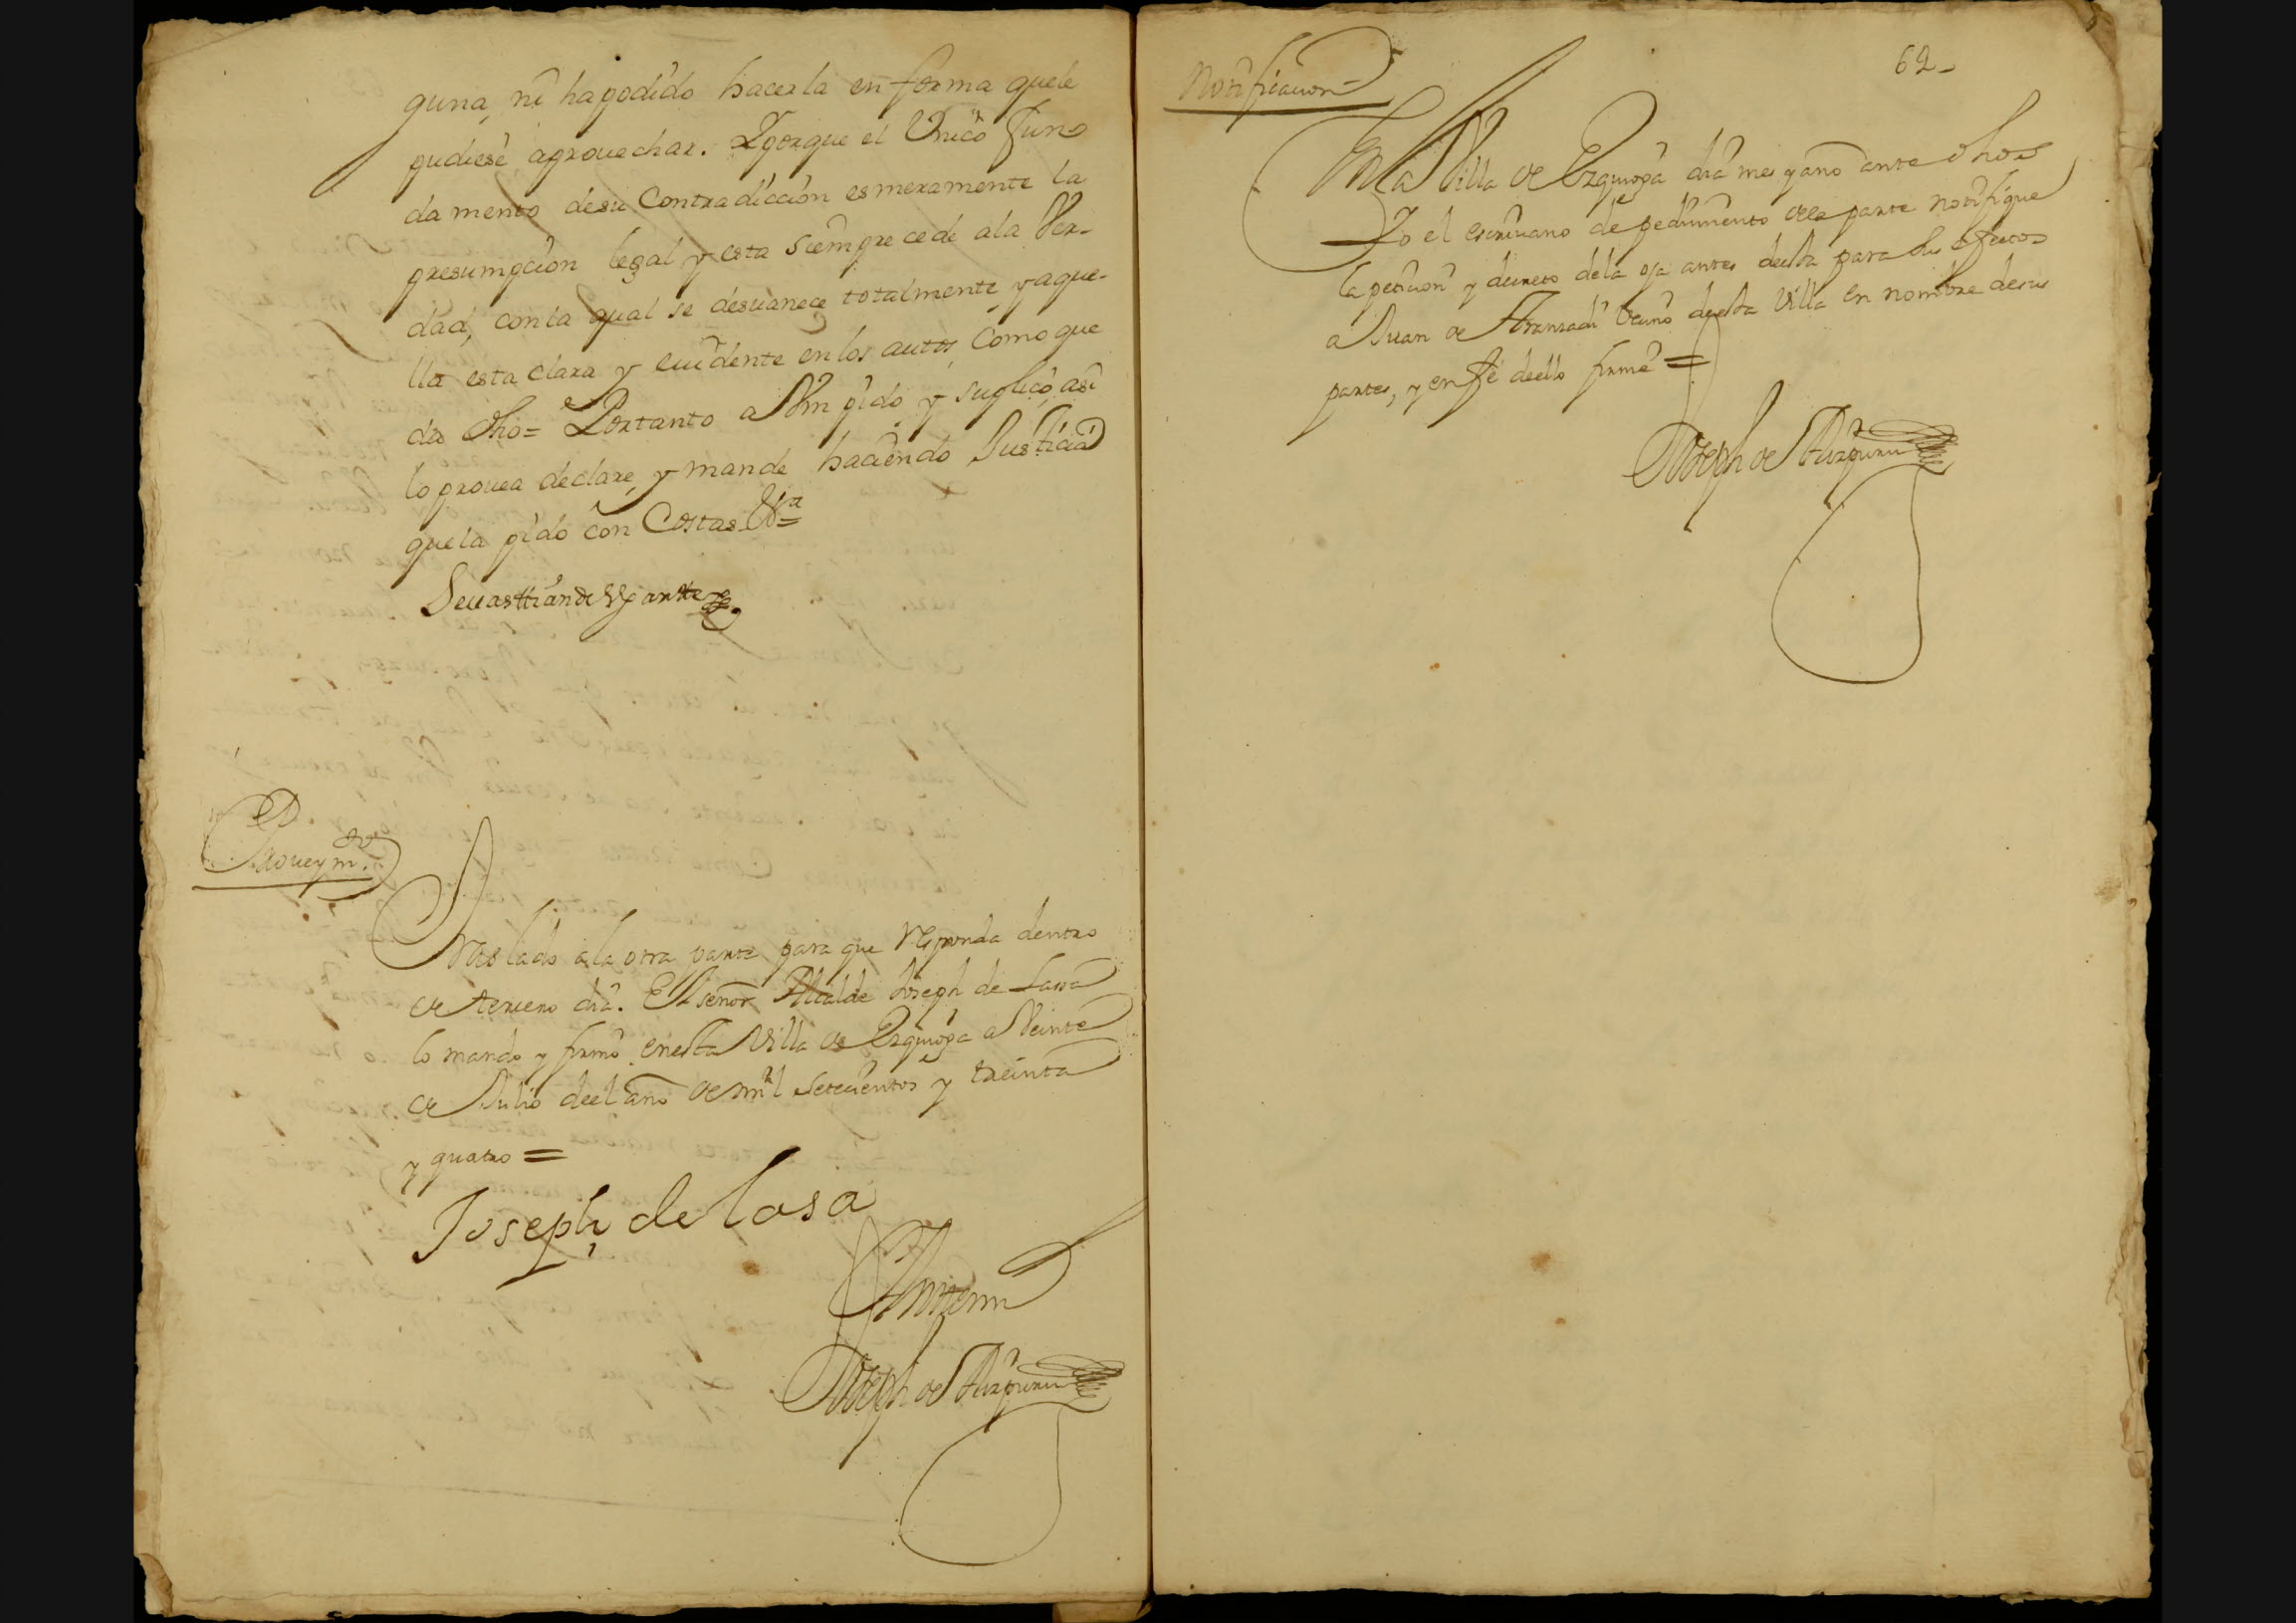 guna, ni ha podido hacerla en forma que le
pudiese aprouechar. Y porque el Unico fun-
damento de su Contradiccion es meramente la
presumpcion legal y esta siempre cede a la Ver-
dad, con la qual se desuanece totalmente y aque-
lla esta clara y euidente en los autos, Como que
da dho = Por tanto a Vm pido y suplico, asi
lo prouea declare, y mande haciendo Justicia
que la pido con Costas &ra =
Seuasttian de Ugartte
Proueym.to
Traslado a la otra parte para que responda dentro
de tercero dia. El señor Alcalde Joseph de Lasa
lo mando y firmo en esta Villa de Ezquioga a Veinte
de Julio de el año de mil setecientos y treinta
y quatro =
Joseph de Lasa
Ante mi
Joseph de Aizpuru
62
Notificacion
En la Villa de Ezquioga dia mes y año ante dhos
Yo el escriuano de pedimiento de la parte notifique
la peticion y decreto de la oja antes de esta para sus efectos
a Juan de Aranzadi vecino de esta Villa en nombre de sus
partes, y en fe de ello firme =
Joseph de Aizpuru